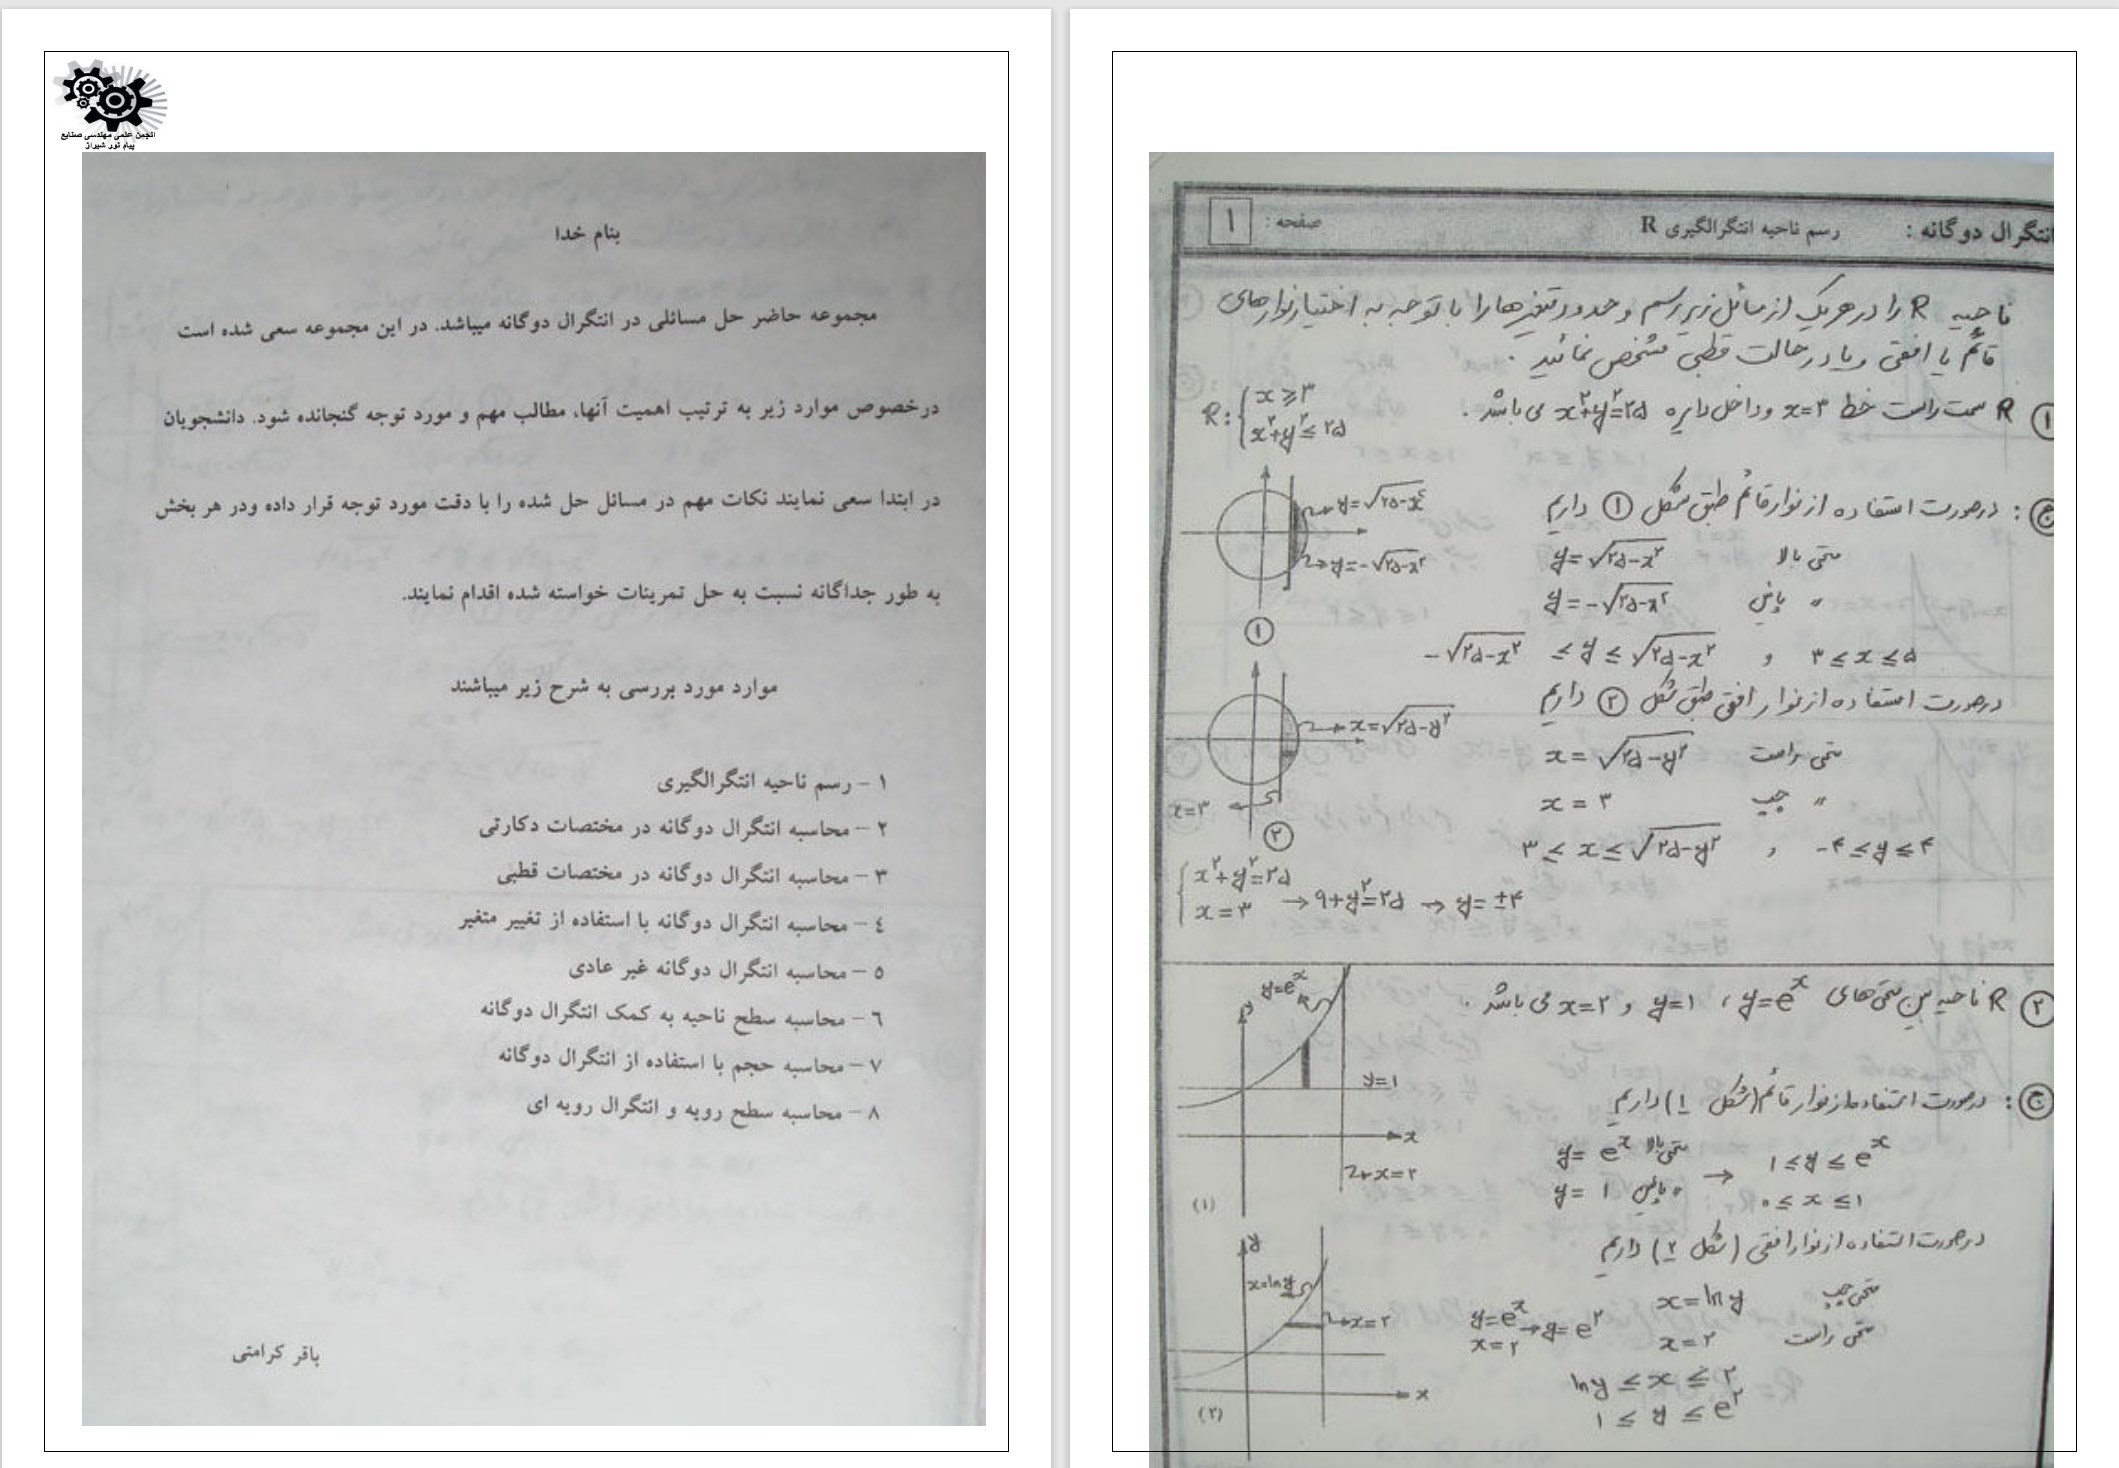 انجمن علمی مهندسی صنایع
پیام نور شیراز
بنام خدا
مجموعه حاضر حل مسائلی در انتگرال دوگانه میباشد. در این مجموعه سعی شده است
درخصوص موارد زیر به ترتیب اهمیت آنها، مطالب مهم و مورد توجه گنجانده شود. دانشجویان
در ابتدا سعی نمایند نکات مهم در مسائل حل شده را با دقت مورد توجه قرار داده ودر هر بخش
به طور جداگانه نسبت به حل تمرینات خواسته شده اقدام نمایند.
موارد مورد بررسی به شرح زیر میباشند
۱ - رسم ناحیه انتگرالگیری
۲ - محاسبه انتگرال دوگانه در مختصات دکارتی
۳ - محاسبه انتگرال دوگانه در مختصات قطبی
٤ - محاسبه انتگرال دوگانه با استفاده از تغییر متغیر
٥ - محاسبه انتگرال دوگانه غیر عادی
٦ - محاسبه سطح ناحیه به کمک انتگرال دوگانه
۷ - محاسبه حجم با استفاده از انتگرال دوگانه
۸ - محاسبه سطح رویه و انتگرال رویه ای
باقر کرامتی
انتگرال دوگانه : رسم ناحیه انتگرالگیری R صفحه : ۱
ناحیه R را در هریک از مسائل زیر رسم و حدود متغیرها را با توجه به اختیار نوارهای
قائم یا افقی و یا در حالت قطبی مشخص نمائید .
۱ R سمت راست خط x=۳ و داخل دایره x²+y²=۲۵ می باشد . R: { x ≥ ۳
x²+y² ≤ ۲۵
ج : درصورت استفاده از نوار قائم طبق شکل ۱ داریم
y=√۲۵-x²
y=-√۲۵-x²
منحنی بالا y=√۲۵-x²
" پائین y=-√۲۵-x²
۱
-√۲۵-x² ≤ y ≤ √۲۵-x² , ۳ ≤ x ≤ ۵
درصورت استفاده از نوار افقی طبق شکل ۲ داریم
x=√۲۵-y²
منحنی راست x=√۲۵-y²
" چپ x=۳
x=۳
۲
۳ ≤ x ≤ √۲۵-y² , -۴ ≤ y ≤ ۴
{ x²+y²=۲۵
x=۳ → ۹+y²=۲۵ → y=±۴
۲ R ناحیه بین منحنی های y=eˣ ، y=۱ و x=۲ می باشد .
y=eˣ
y
y=۱
x
x=۲
(۱)
ج : درصورت استفاده از نوار قائم (شکل ۱) داریم
منحنی بالا y=eˣ → ۱ ≤ y ≤ eˣ
" پائین y=۱ ۰ ≤ x ≤ ۱
درصورت استفاده از نوار افقی (شکل ۲) داریم
y
x=lny
x=۲
x
(۲)
منحنی چپ x=lny
منحنی راست x=۲
y=eˣ
x=۲ → y=e²
lny ≤ x ≤ ۲
۱ ≤ y ≤ e²